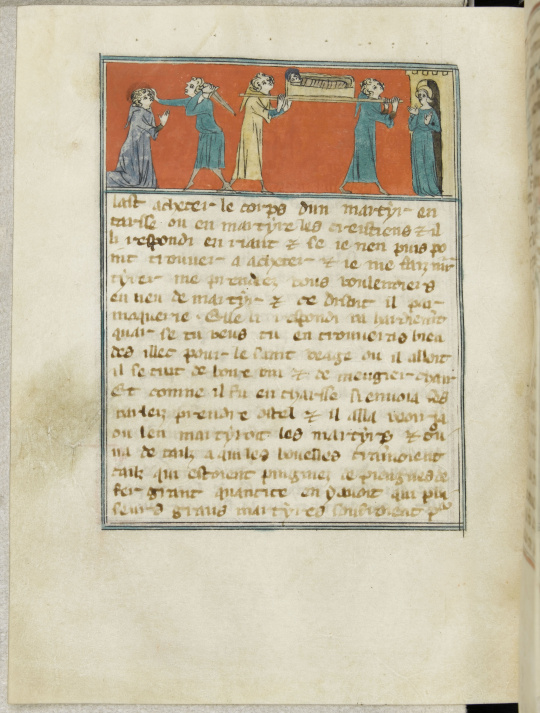 last acheter le corps dun martyr en
tarsse ou en martyre les crestiens ⁊ il
li respondi en riant ⁊ se ie nen puis po
nit trouuer a acheter ⁊ ie me
tyrer me prendrez vous voulentiers
en lieu de martyr ⁊ ce disoit il par
moquerie Elle li respondi tu hardiemt
quar se tu veus tu en trouueras bien
des illec pour le saint veage ou il alloit
il se tint de boire vin ⁊ de mengier char
Et comme il fu en tharsse si enuoia ses
varlez prendre ostel ⁊ il alla veoir ia
ou len martyroit les martyrs ⁊ en
de tailz a qui les bouelles trainoient
tailz qui estoient pingniez de piengnes de
fer grant quantite en y auoit qui plu
seurs grans martyres souffroient